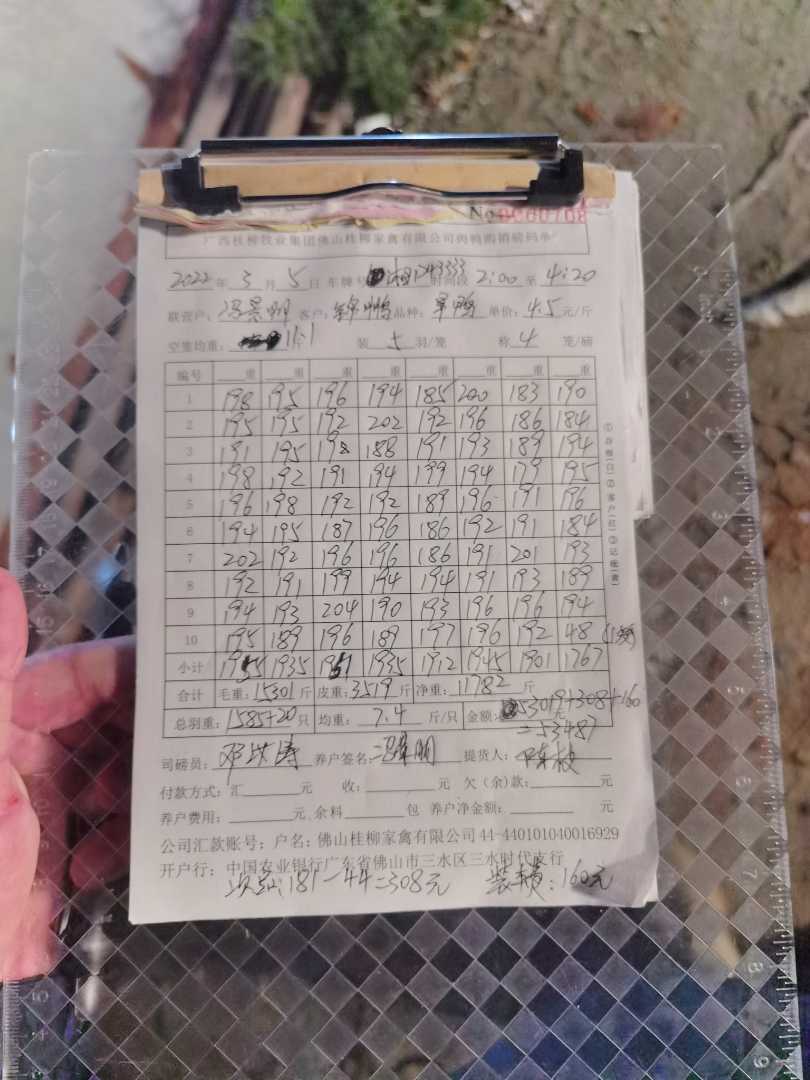 No 0000708
广西桂柳牧业集团佛山桂柳家禽有限公司肉鸭购销磅码单
2022年 3月 5日 车牌号 243333 时间段 2:00 至 4:20
联营户: 冯景明 客户: 锦鹏 品种: 旱鸭 单价: 4.5 元/斤
空笼均重: 装 5 羽/笼 称 4 笼/磅
编号 重 重 重 重 重 重 重 重
1 198 195 196 194 185 200 183 190
2 195 195 192 202 192 196 186 184
3 191 195 198 188 191 193 189 194
4 198 192 191 194 199 194 179 195
5 196 198 192 192 189 196 191 196
6 194 195 187 196 186 192 191 184
7 202 192 196 196 186 191 201 193
8 192 191 199 194 194 191 193 189
9 194 193 204 190 193 196 196 194
10 195 189 196 189 197 196 192 48
小计 1955 1935 1951 1935 1912 1945 1901 1767
合计 毛重: 15301 斤 皮重: 3519 斤 净重: 11782 斤
总羽重: 1585+20 只 均重: 7.4 斤/只 金额: 53019+308+160
=53487
司磅员: 养户签名: 提货人:
付款方式: 汇 元 收: 元 欠(余)款: 元
养户费用: 元, 余料 包 养户净金额: 元
公司汇款账号: 户名: 佛山桂柳家禽有限公司 44-440101040016929
开户行: 中国农业银行广东省佛山市三水区三水时代支行
181-44=308元 装车费: 160元